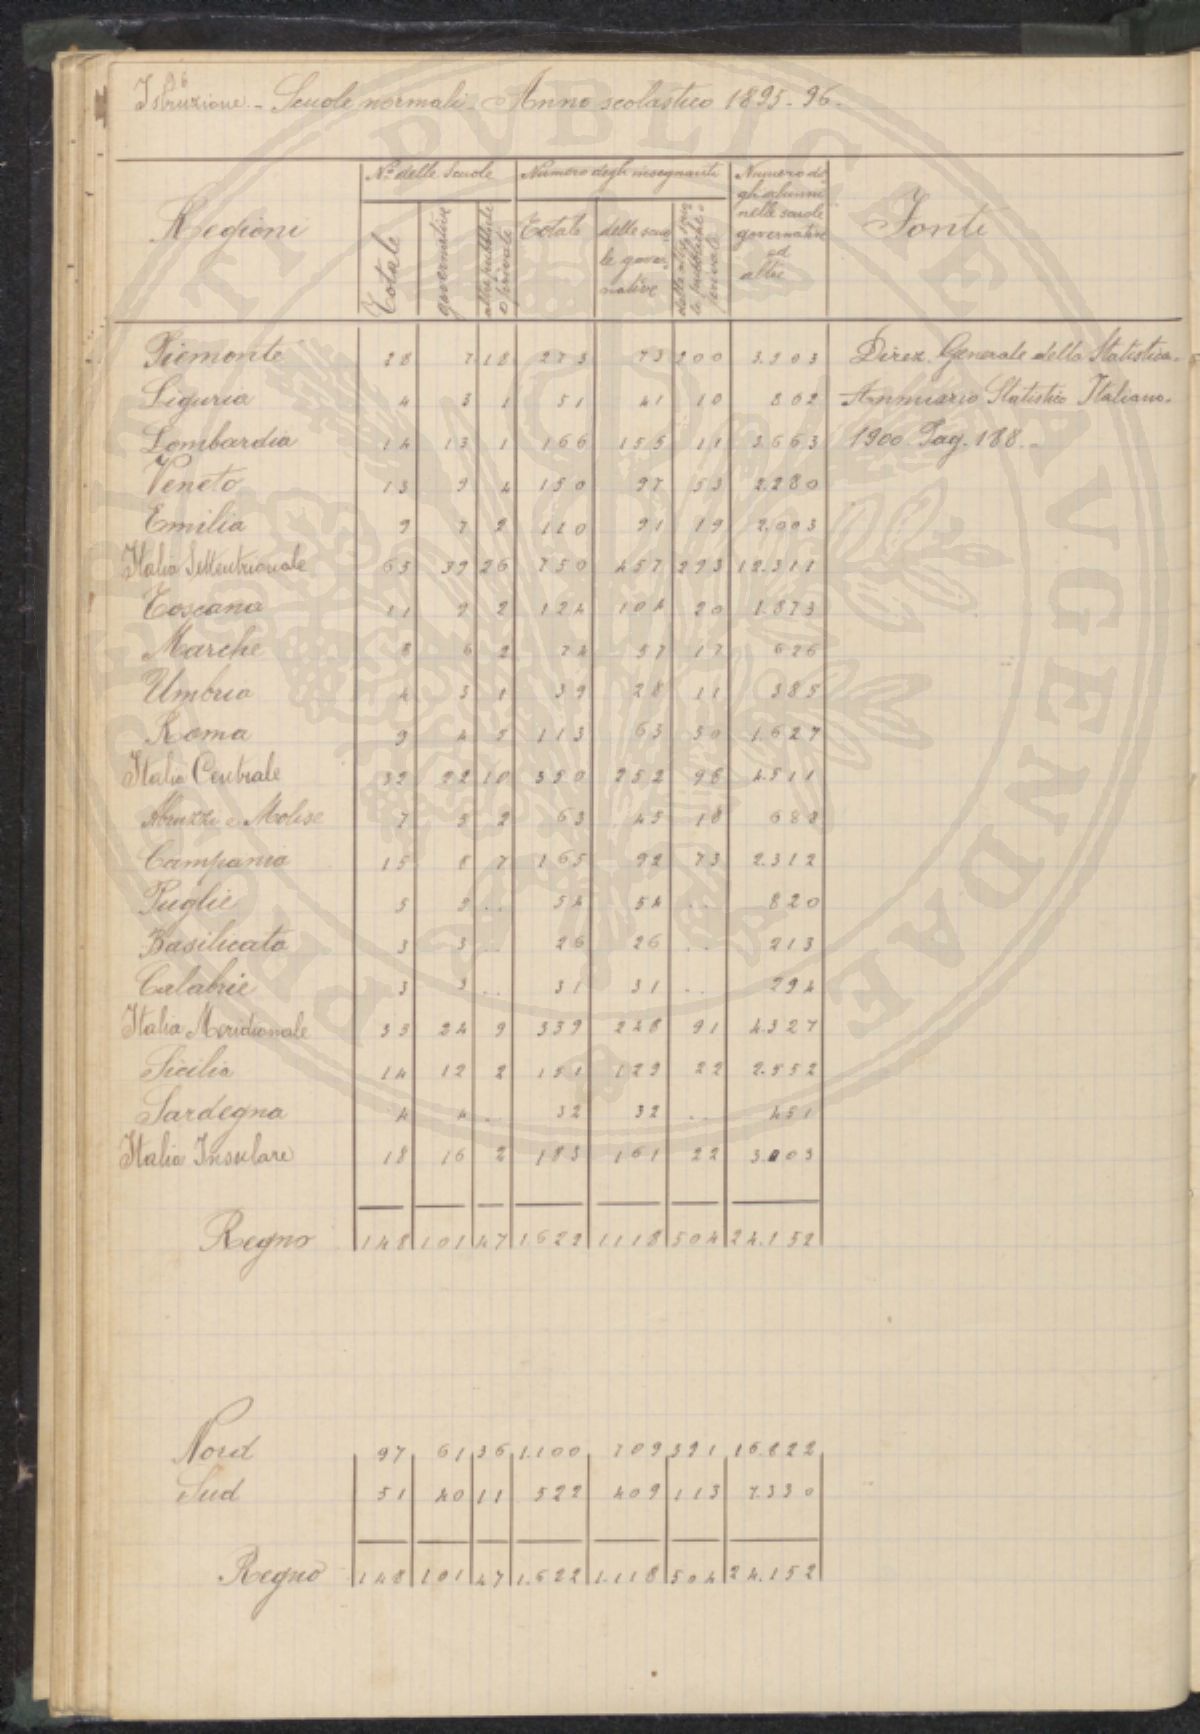 96
Istruzione - Scuole normali - Anno scolastico 1895-96.
Regioni | No. delle Scuole | Numero degli insegnanti | Numero degli alunni nelle scuole governative ed altre | Fonti
Totale | governative | altre pubbliche o private | Totale | delle scuole governative | delle altre scuole pubbliche o private
Piemonte 25 7 18 273 73 200 3.503 Direz. Generale della Statistica.
Liguria 4 3 1 51 41 10 862 Annuario Statistico Italiano.
Lombardia 14 13 1 166 155 11 3.663 1900 Pag. 188.-
Veneto 13 9 4 150 97 53 2.280
Emilia 9 7 2 110 91 19 2.003
Italia Settentrionale 65 39 26 750 457 293 12.311
Toscana 11 9 2 124 104 20 1.873
Marche 8 6 2 74 57 17 626
Umbria 4 3 1 39 28 11 385
Roma 9 4 5 113 63 50 1.627
Italia Centrale 32 22 10 350 252 98 4.511
Abruzzi e Molise 7 5 2 63 45 18 688
Campania 15 8 7 165 92 73 2.312
Puglie 5 5 .. 54 54 .. 820
Basilicata 3 3 .. 26 26 .. 213
Calabrie 3 3 .. 31 31 .. 294
Italia Meridionale 33 24 9 339 248 91 4.327
Sicilia 14 12 2 151 129 22 2.552
Sardegna 4 4 .. 32 32 .. 451
Italia Insulare 18 16 2 183 161 22 3.003
Regno 148 101 47 1.622 1.118 504 24.152
Nord 97 61 36 1.100 709 391 16.822
Sud 51 40 11 522 409 113 7.330
Regno 148 101 47 1.622 1.118 504 24.152